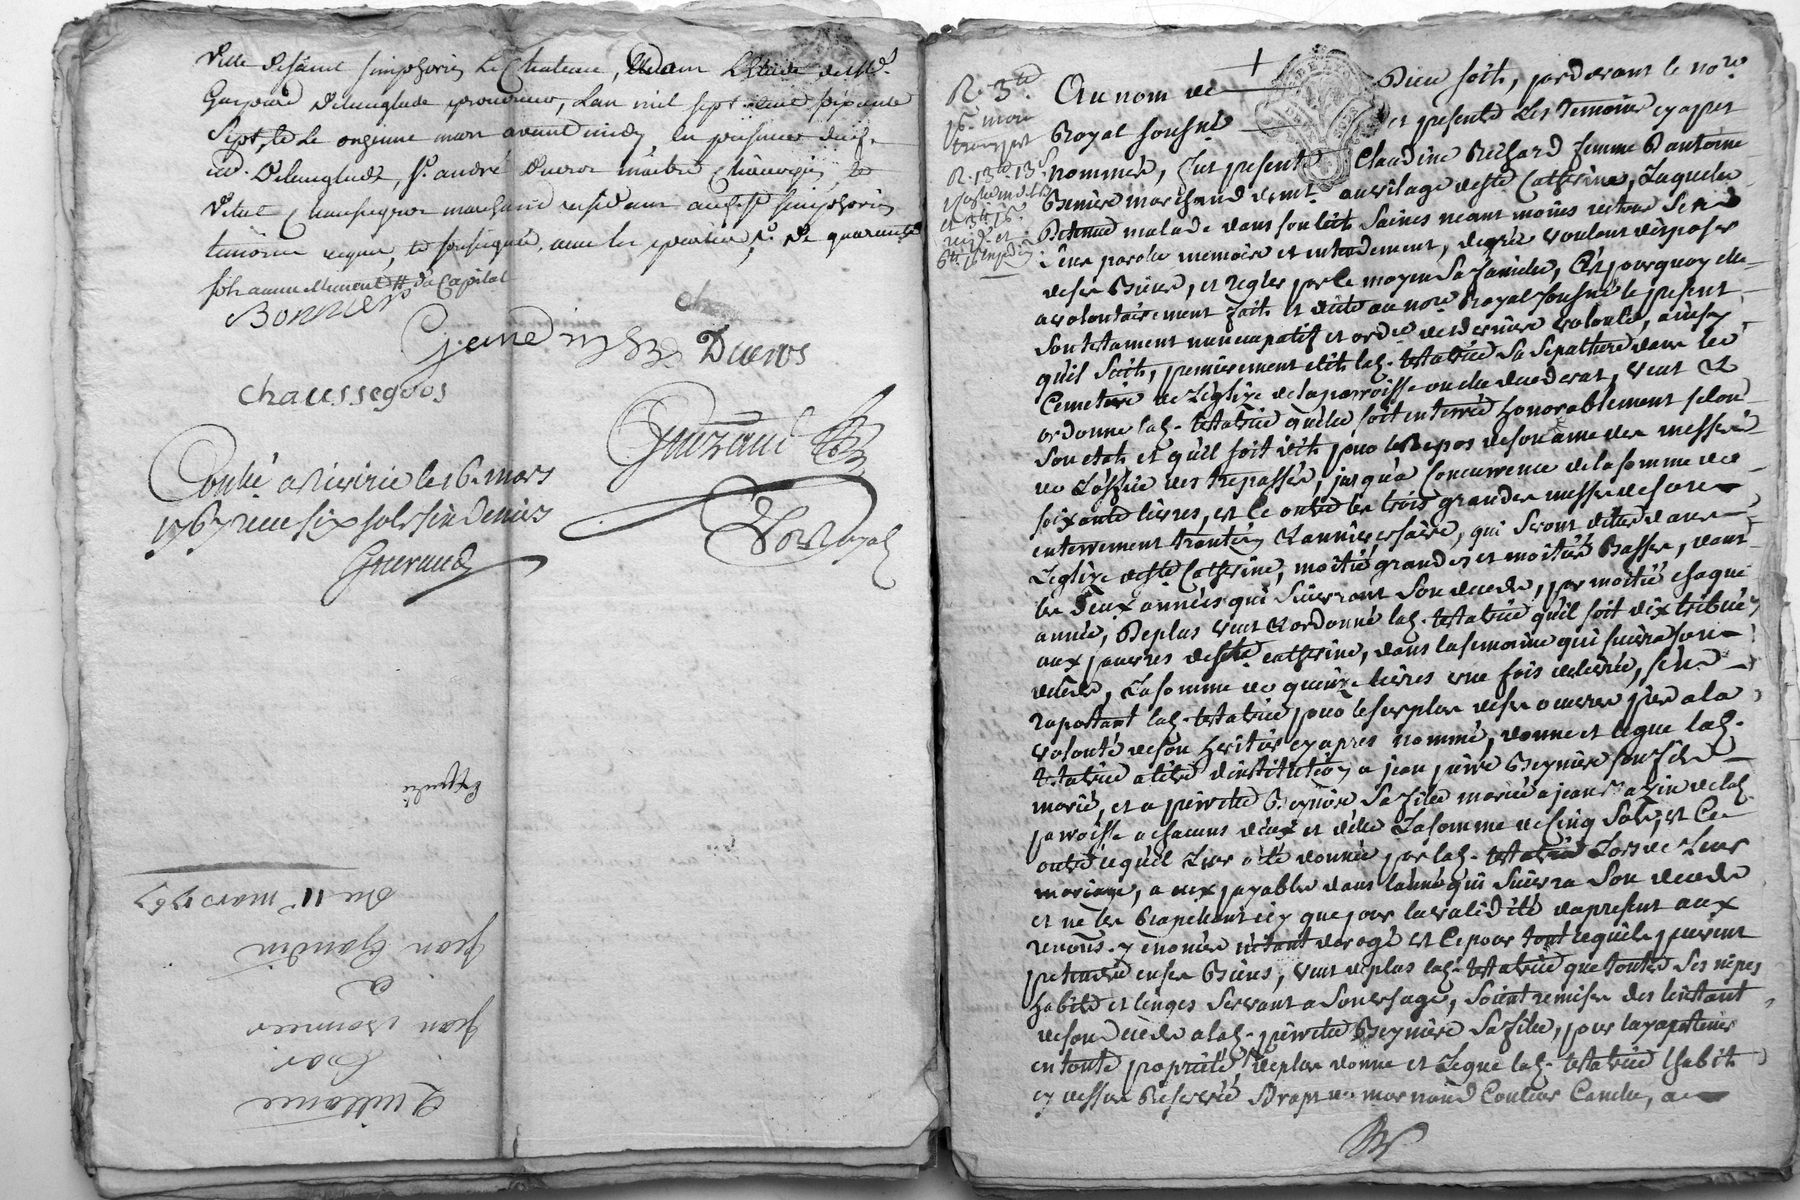 ville de saint simphorien le chateau,
Gaspard Delanglade procureur, l'an mil sept cent soixante
Sept, et le onzieme mars avant midy en presence dud.
me. Delanglade, sr. andré Ducros maitre Chirurgien, et
vital Chaussegros marchand residant audit st simphorien
temoins requis, et soussignés, avec les parties,
Bonnier
Ducros
chaussegros
Gueraud
Contlé a Riverie le 16. mars
1767 reçu six sols six deniers
Gueraud
not. royal
Expedié
Quittance
Par
Jean Bonnier
a
Jean Gandin
Du 11e mars 1767
R. 3 tt
Au nom de Dieu soit, pardevant le nore.
Royal soussné et presents Les temoins cy apres
nommés, fut presente Claudine Richard femme d'antoine
Beyniere marchand demt. au vilage de ste Catherine, Laquelle
detenue malade dans son lit, Saines neant moins estant de Ses
Sens parole memoire et entendement, de gré voulant disposer
de ses Biens, et regler par le moyen Sa famille, C'est pourquoy elle
a volontairement fait et dicté au nore. Royal soussné le present
Son testament nuncupatif et ordce de derniere volonté, ainsy
qu'il Suit, premierement elit lad. testatrice Sa Sepulture dans le
Cemetiere de L'eglize de la parroisse ou elle decedera, veut et
ordonne lad. testatrice qu'elle soit enterrée honorablement selon
Son etat, et qu'il soit dit pour le Repos de son ame des messes
de L'office des trepassés, jusqu'a Concurrence de la somme de
soixante livres, et ce outre les trois grandes messes de son
enterrement trantin et anniversaire, qui Seront dites dans
L'eglize de ste Catherine, moitié grandes et moitié Basses, dans
les deux années qui Suivront Son decede, par moitié chaque
année, De plus veut et ordonne lad. testatrice qu'il soit distribué
aux pauvres de ste catherine, dans la semaine qui suivra son
decede, La somme de quinze livres une fois delivrée, s'en
raportant lad. testatrice pour le surplus de ses oeuvres pies a la
volonté de son heritier cy apres nommé, donne et legue lad.
testatrice a titre d'institution a jean pierre Beyniere son fils
marié, et a pierrette Beyniere Sa fille mariée a jean de lad.
parroisse a chacuns d'eux et d'elle La somme de Cinq Sols, et Ce
outre ce qu'il Leur a été donnée par lad. testatrice Lors de Leur
mariage, a eux payable dans l'année qui Suivra Son decede
et ne les Rapellent icy que pour la validité du present aux
renons. y enoncés n'etant derogé et Ce pour tout ce qu'ils peuvent
pretendre en ses Biens, veut de plus lad. testatrice que toutes Ses nipes
habits et linges Servant a Son usage, Soient remises des l'instant
de son decede a lad. pierrette Beyniere Sa fille, pour luy apartenir
en toute proprieté, De plus donne et Legue lad. testatrice l'habit
cy dessus Reservé Drap